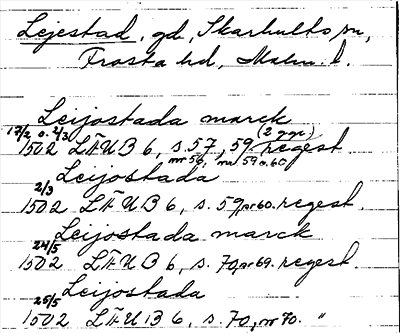 Lejestad, gd, Skarhults sn,
Frosta hd, Malm. l.
Leijostada marck
17/2 o. 2/3 (2 ggr)
1502 LÄUB 6, s. 57, 59 regest.
nr 56, nr 59 o. 60
Leijostada
2/3
1502 LÄUB 6, s. 59, nr 60. regest.
Leijostada marck
24/5
1502 LÄUB 6, s. 70, nr 69. regest.
Leijostada
25/5
1502 LÄUB 6, s. 70, nr 70. "